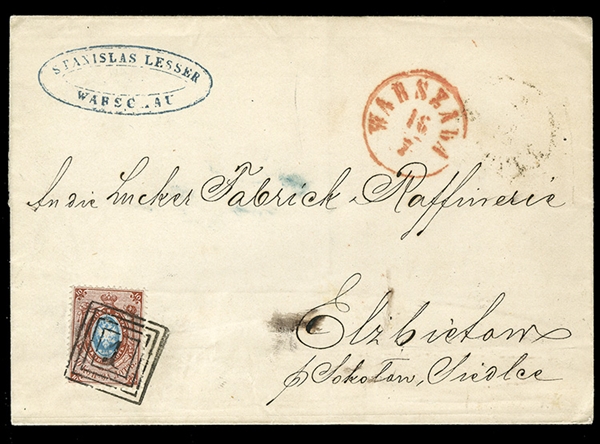 STANISLAS LESSER
WARSCHAU
WARSZAWA
16
An die Zucker Fabrick Raffinerie
Elzbietow
p Sokołow, Siedlce
1